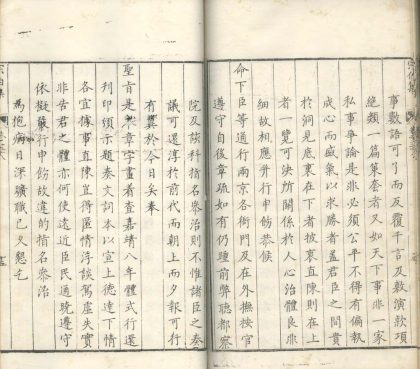 事數語可了而反覆千言及數演款項
絕類一篇策套者又如天下事非一家
私事爭論是非必須公平不得有偏執
成心而盛氣以求勝者蓋君臣之間貴
於洞見底裏在下者披衷直陳則在上
者一覽可決所關係於人心治體良非
細故相應并行申飭恭候
命下臣等通行兩京各衙門及在外撫按官
遵守自後章疏如有仍踵前弊聽都察
院及該科指名參治則不惟諸臣之奏
議可還淳於前代而朝上而夕報可行
有冀於今日矣奉
聖旨是奏章字畫着查嘉靖八年體式行還
列印頒示題奏文詞本以宣上德達下情
各宜據事直陳豈得情浮談駕虛失實
非告君之體亦何使遠近臣民通曉遵守
依擬嚴行申飭故違的指名參治
為抱病日深曠職已久懇乞
宗伯集